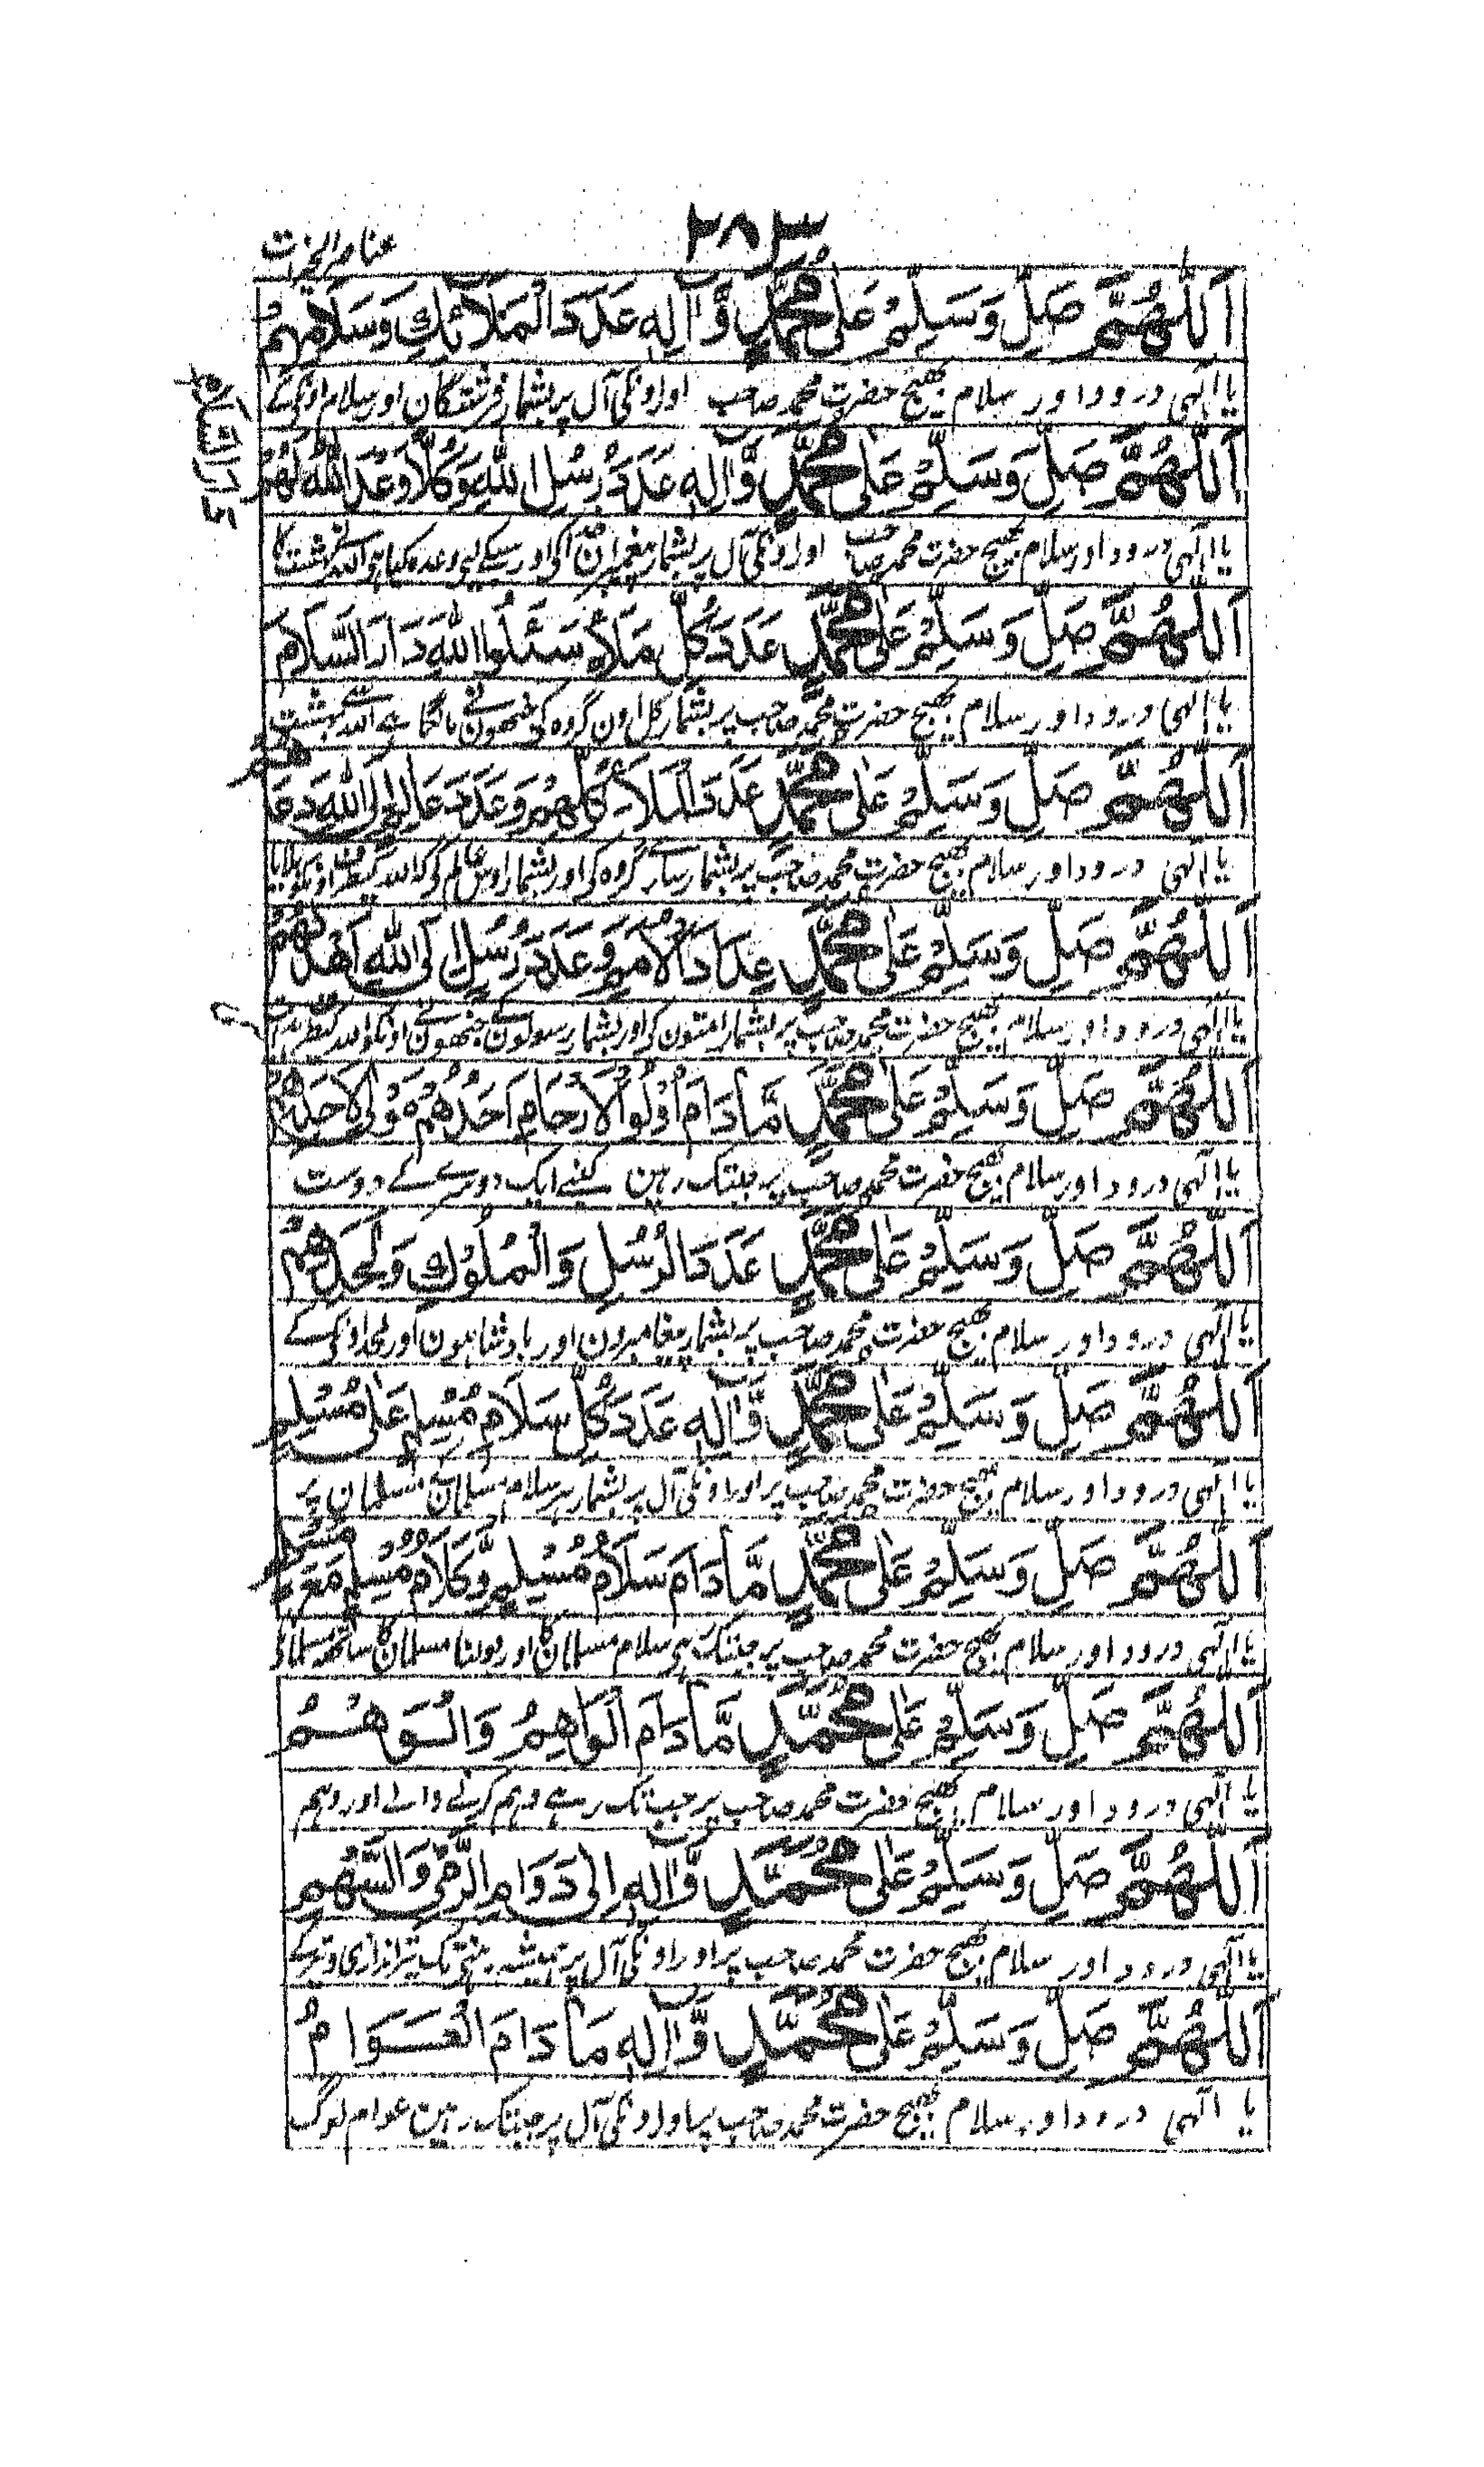 ۲۸۳
عناصر الخیرات
اَللّٰهُمَّ صَلِّ وَسَلِّمْ عَلٰی مُحَمَّدٍ وَّاٰلِهٖ عَدَدَ الْمَلَآئِكِ وَسَلَامِهِمْ
یا الٰہی درود اور سلام بھیج حضرت محمد صاحب اور اونکی آل پر بشمار فرشتگان اور سلام اونکے
اَللّٰهُمَّ صَلِّ وَسَلِّمْ عَلٰی مُحَمَّدٍ وَّاٰلِهٖ عَدَدَ رُسُلِ اللّٰهِ وَكُلًّا وَّعَدَ اللّٰهُ لَهُمْ
یا الٰہی درود اور سلام بھیج حضرت محمد صاحب اور اونکی آل پر بشمار
دَارَ السَّلَامِ
اَللّٰهُمَّ صَلِّ وَسَلِّمْ عَلٰی مُحَمَّدٍ عَدَدَ كُلِّ مَلَاءٍ سَئَلُوا اللّٰهَ دَارَ السَّلَامِ
یا الٰہی درود اور سلام بھیج حضرت محمد صاحب پر بشمار کل اون گروہ کی جنھون نے مانگا ہے اللہ سے بہشت
اَللّٰهُمَّ صَلِّ وَسَلِّمْ عَلٰی مُحَمَّدٍ عَدَدَ الْمَلَاءِ كُلِّهِمْ وَعَدَدَ عَالِمٍ اِلَی اللّٰهِ دَعَاهُمْ
یا الٰہی درود اور سلام بھیج حضرت محمد صاحب پر بشمار سارے گروہ کی اور بشمار اوس عالم کی کہ اللہ کیطرف اونکو بلایا
اَللّٰهُمَّ صَلِّ وَسَلِّمْ عَلٰی مُحَمَّدٍ عِدَادَ الْاُمَمِ وَعَدَدَ رُسُلٍ اِلَی اللّٰهِ
یا الٰہی درود اور سلام بھیج حضرت محمد صاحب پر بشمار امتون کی اور بشمار رسولون کے جنھون نے اونکو اللہ کیطرف
اَللّٰهُمَّ صَلِّ وَسَلِّمْ عَلٰی مُحَمَّدٍ مَّا دَامَ اُولُوا الْاَرْحَامِ اَحَدُهُمْ مَوْلٰی لِاَحَدِهِمْ
یا الٰہی درود اور سلام بھیج حضرت محمد صاحب پر جبتک رہین کنبے ایک دوسرے کے دوست
اَللّٰهُمَّ صَلِّ وَسَلِّمْ عَلٰی مُحَمَّدٍ عَدَدَ الرُّسُلِ وَالْمُلُوْكِ وَلَحَدِهِمْ
یا الٰہی درود اور سلام بھیج حضرت محمد صاحب پر بشمار پیغامبرون اور بادشاہون اور لحد اونکی کے
اَللّٰهُمَّ صَلِّ وَسَلِّمْ عَلٰی مُحَمَّدٍ وَّاٰلِهٖ عَدَدَ كُلِّ سَلَامِ مُسْلِمٍ عَلٰی مُسْلِمٍ
یا الٰہی درود اور سلام بھیج حضرت محمد صاحب پر اور اونکی آل پر بشمار ہر سلام مسلمان کے مسلمان پر
اَللّٰهُمَّ صَلِّ وَسَلِّمْ عَلٰی مُحَمَّدٍ مَّا دَامَ سَلَامُ مُسْلِمٍ وَّكَلَامُ مُسْلِمٍ مَّعَ مُسْلِمٍ
یا الٰہی درود اور سلام بھیج حضرت محمد صاحب پر جبتک ہی سلام مسلمان کا اور بولنا مسلمان کا ساتھ مسلمان
اَللّٰهُمَّ صَلِّ وَسَلِّمْ عَلٰی مُحَمَّدٍ مَّا دَامَ الْوَاهِمُ وَالْوَهْمُ
یا الٰہی درود اور سلام بھیج حضرت محمد صاحب پر جب تک رہے وہم کرنے والے اور وہم
اَللّٰهُمَّ صَلِّ وَسَلِّمْ عَلٰی مُحَمَّدٍ وَّاٰلِهٖ اِلٰی دَوَامِ الرَّمْیِ وَالسَّهْمِ
یا الٰہی درود اور سلام بھیج حضرت محمد صاحب پر اور اونکی آل پر ہمیشہ رہنے تک تیر اندازی و تیر کے
اَللّٰهُمَّ صَلِّ وَسَلِّمْ عَلٰی مُحَمَّدٍ وَّاٰلِهٖ مَا دَامَ الْعَوَامُ
یا الٰہی درود اور سلام بھیج حضرت محمد صاحب پر اور اونکی آل پر جبتک رہین عوام لوگ